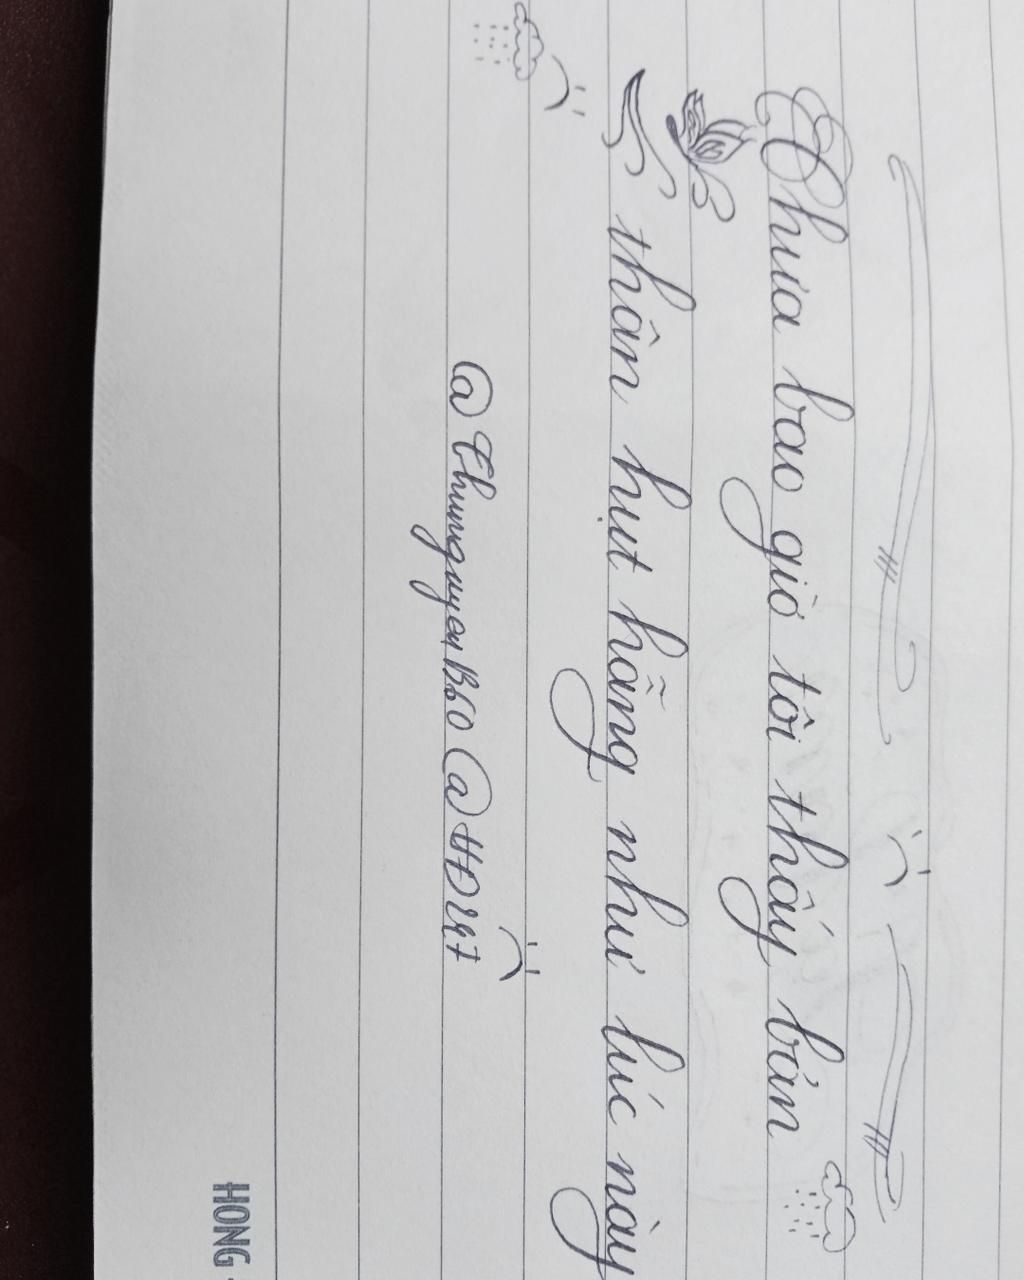 Chưa bao giờ tôi thấy bản
thân hụt hẫng như lúc này
@ThungnguyenBáo @HĐ247
HONG